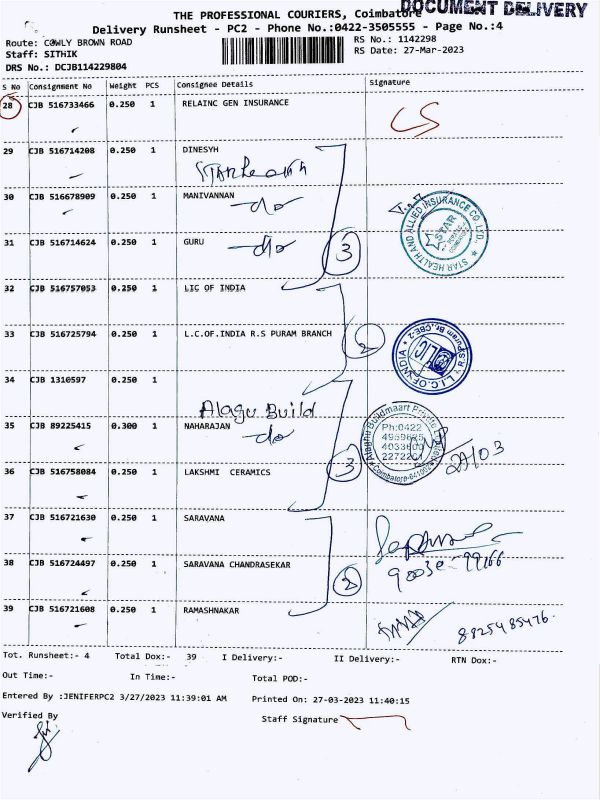 DOCUMENT DELIVERY
THE PROFESSIONAL COURIERS, Coimbatore
Delivery Runsheet - PC2 - Phone No.:0422-3505555 - Page No.:4
Route: COWLY BROWN ROAD
RS No.: 1142298
Staff: SITHIK
RS Date: 27-Mar-2023
DRS No.: DCJB114229804
S No Consignment No Weight PCS Consignee Details Signature
28 CJB 516733466 0.250 1 RELAINC GEN INSURANCE
29 CJB 516714208 0.250 1 DINESYH
Star health
30 CJB 516678909 0.250 1 MANIVANNAN
-do
STAR HEALTH AND ALLIED INSURANCE CO LTD.
STAR
31 CJB 516714624 0.250 1 GURU
-do
3
32 CJB 516757053 0.250 1 LIC OF INDIA
33 CJB 516725794 0.250 1 L.C.OF.INDIA R.S PURAM BRANCH
2
L.I.C.OF.INDIA R.S Puram Br.,CBE-2
34 CJB 1310597 0.250 1
Alagu Build
35 CJB 89225415 0.300 1 NAHARAJAN
-do
Buildmaart Private
Ph:0422
Coimbatore
27/03
36 CJB 516758084 0.250 1 LAKSHMI CERAMICS
3
37 CJB 516721630 0.250 1 SARAVANA
38 CJB 516724497 0.250 1 SARAVANA CHANDRASEKAR
2
39 CJB 516721608 0.250 1 RAMASHNAKAR
8825485476.
Tot. Runsheet:- 4 Total Dox:- 39 I Delivery:- II Delivery:- RTN Dox:-
Out Time:- In Time:- Total POD:-
Entered By :JENIFERPC2 3/27/2023 11:39:01 AM Printed On: 27-03-2023 11:40:15
Verified By
Staff Signature